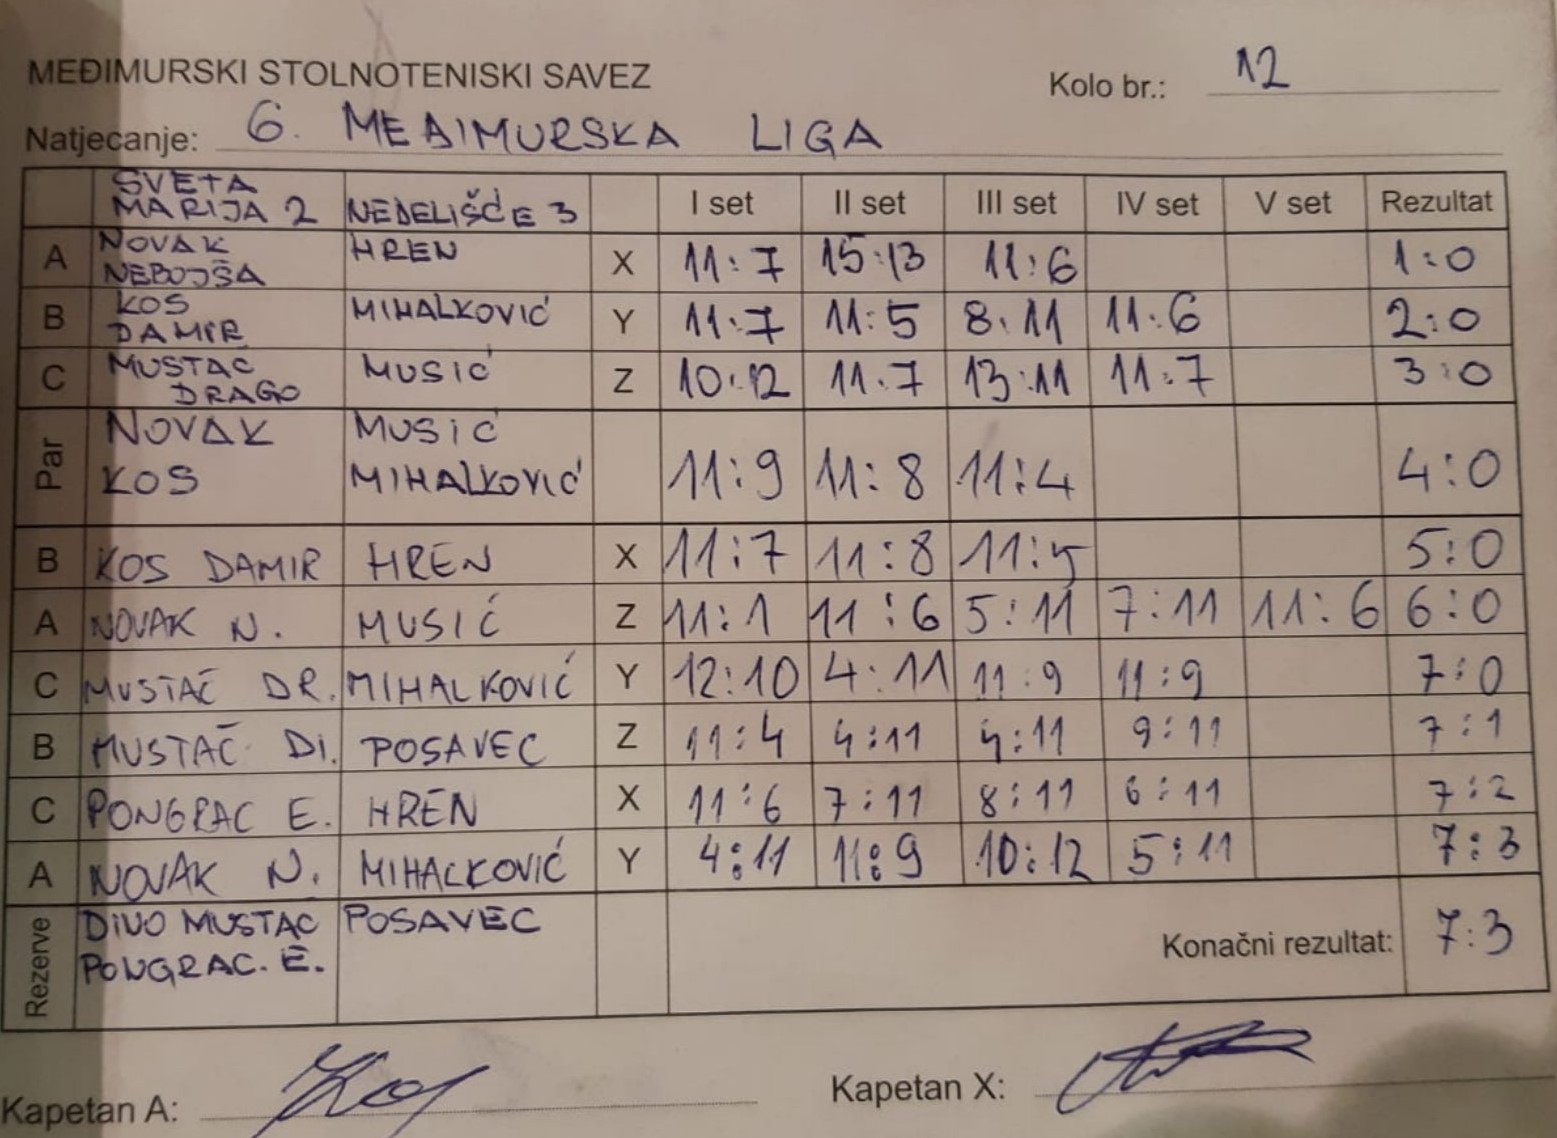 MEĐIMURSKI STOLNOTENISKI SAVEZ Kolo br.: 12
Natjecanje: 6. MEĐIMURSKA LIGA
SVETA MARIJA 2 NEDELIŠĆE 3 I set II set III set IV set V set Rezultat
A NOVAK NEBOJŠA HREN X 11:7 15:13 11:6 1:0
B KOS DAMIR MIHALKOVIĆ Y 11:7 11:5 8:11 11:6 2:0
C MUSTAC DRAGO MUSIĆ Z 10:12 11:7 13:11 11:7 3:0
Par NOVAK KOS MUSIĆ MIHALKOVIĆ 11:9 11:8 11:4 4:0
B KOS DAMIR HREN X 11:7 11:8 11:5 5:0
A NOVAK N. MUSIĆ Z 11:1 11:6 5:11 7:11 11:6 6:0
C MUSTAČ DR. MIHALKOVIĆ Y 12:10 4:11 11:9 11:9 7:0
B MUSTAČ DI. POSAVEC Z 11:4 4:11 4:11 9:11 7:1
C PONGRAC E. HREN X 11:6 7:11 8:11 6:11 7:2
A NOVAK N. MIHALKOVIĆ Y 4:11 11:9 10:12 5:11 7:3
Rezerve DIVO MUSTAC POSAVEC
PONGRAC. E. Konačni rezultat: 7:3
Kapetan A: Kapetan X: